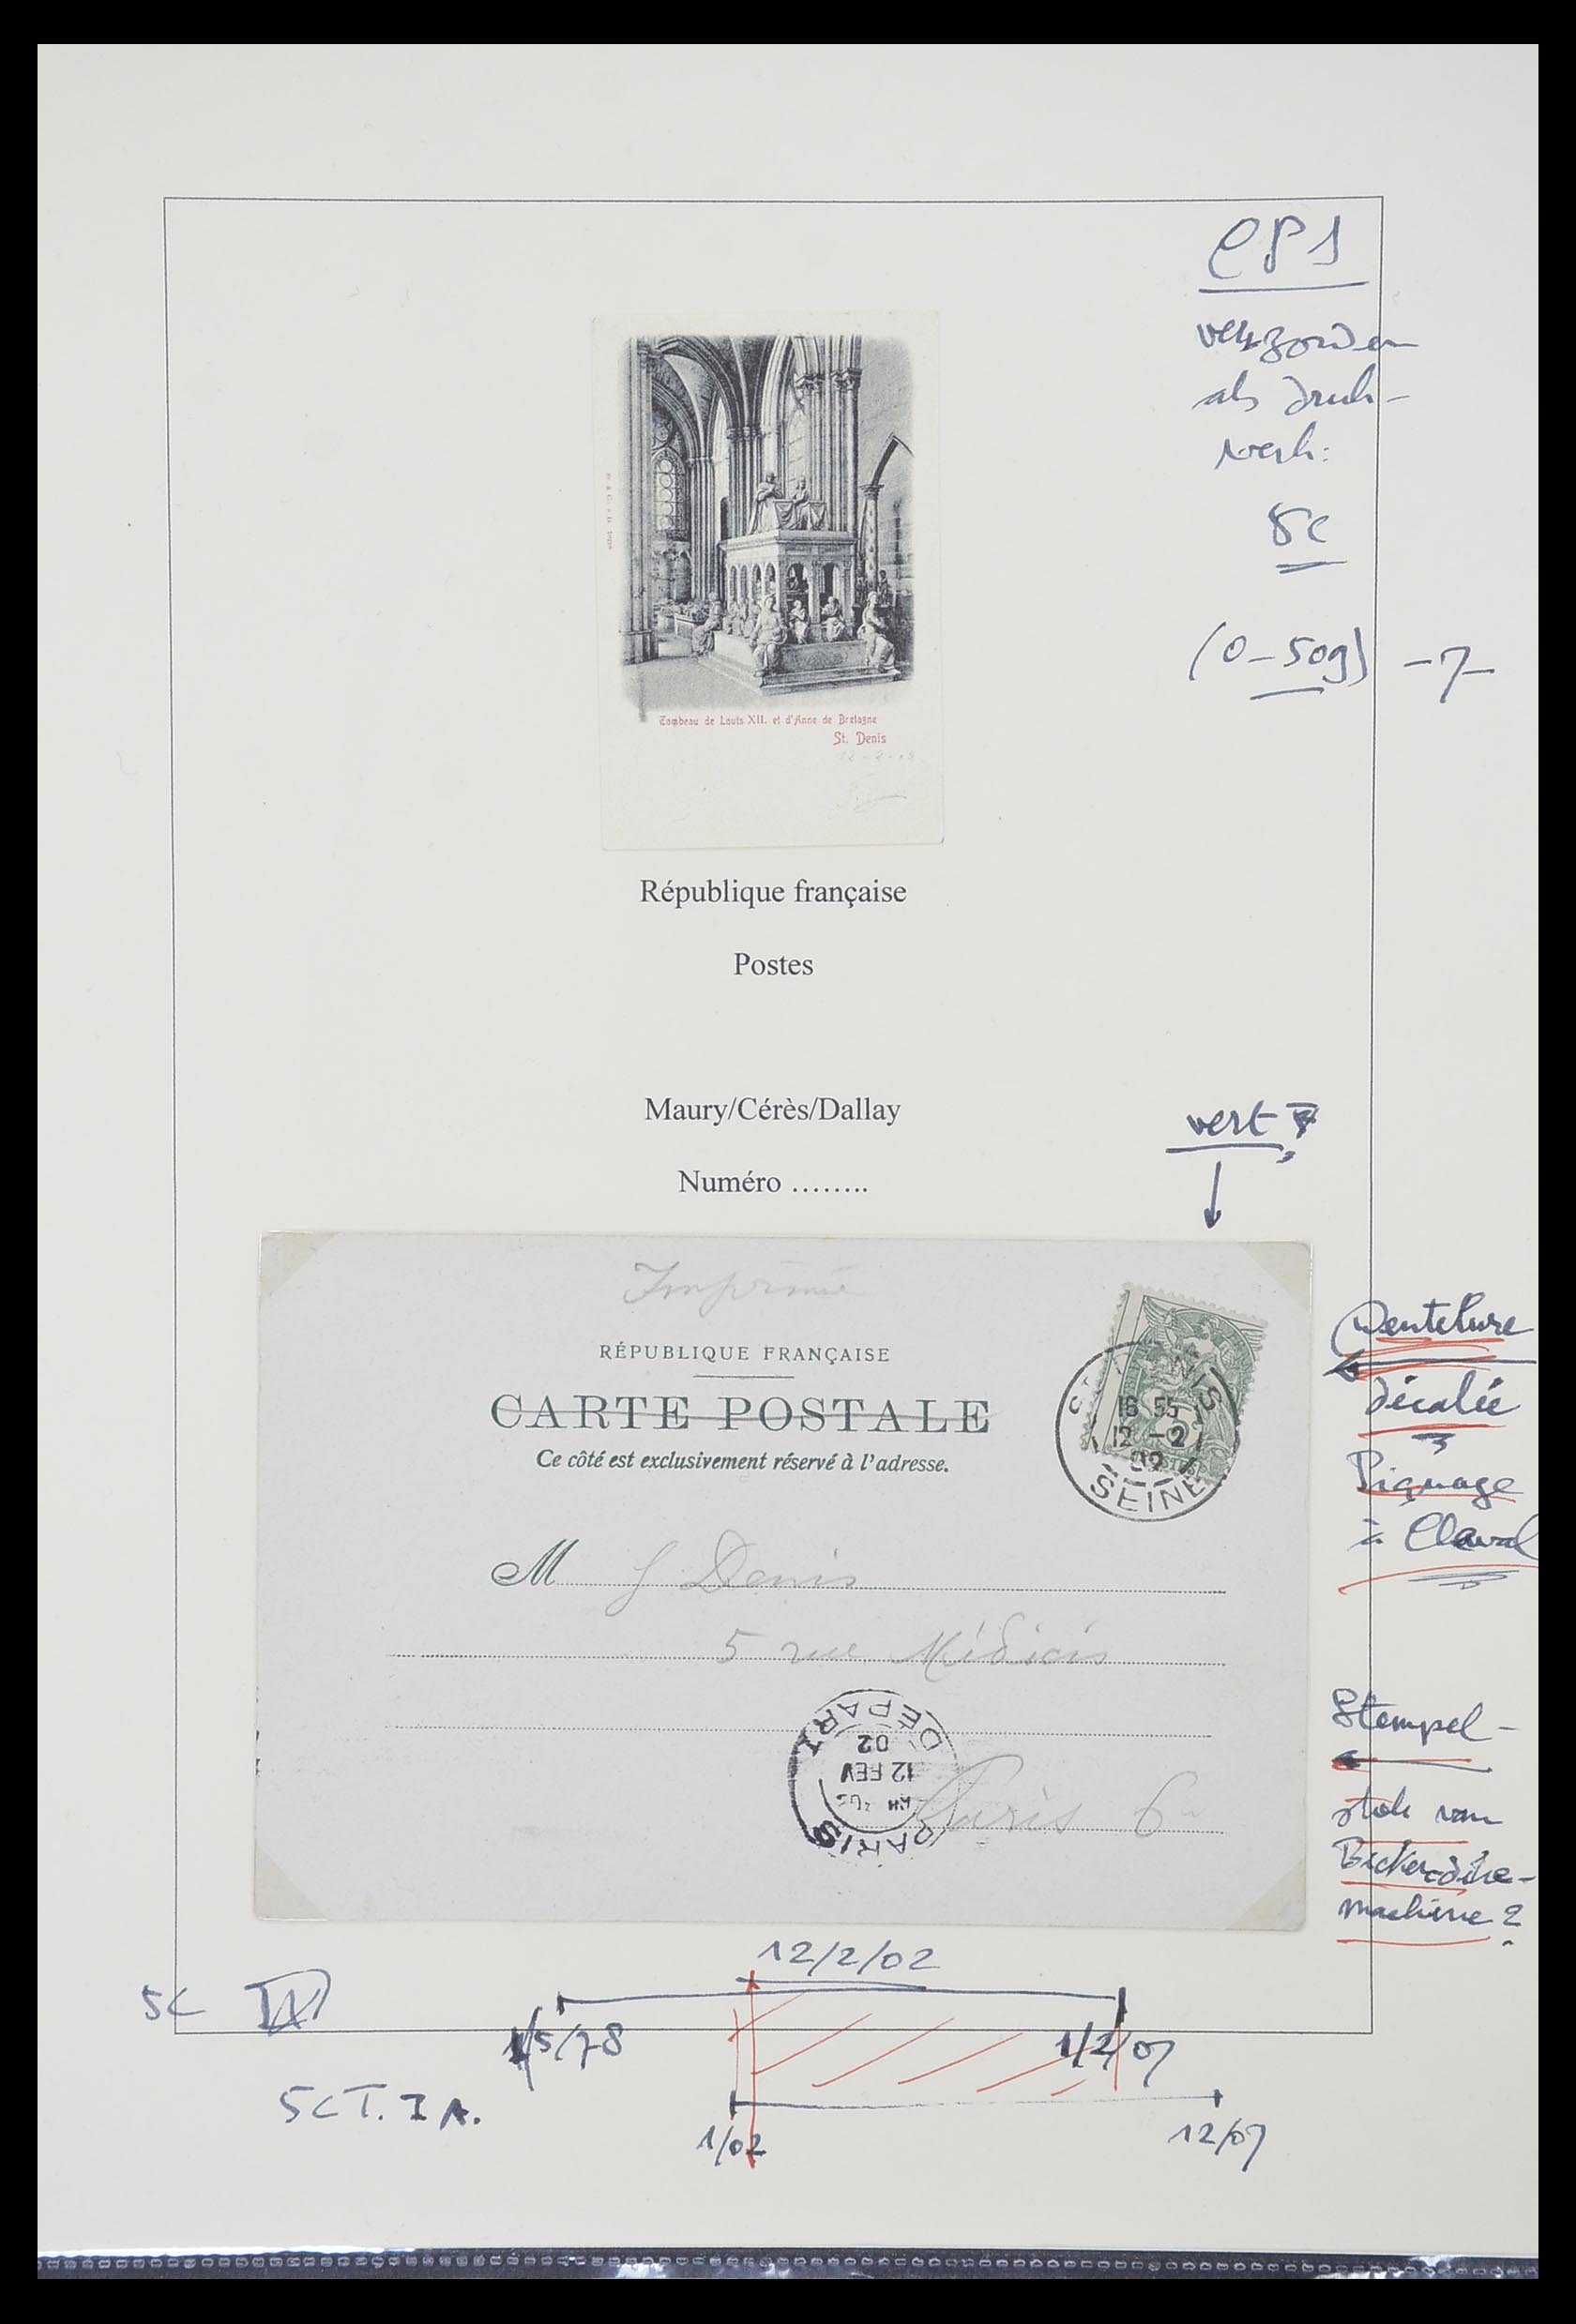 CP1
verzonden
als druk-
werk:
5c
(0-50g) -7-
Tombeau de Louis XII. et d'Anne de Bretagne
St. Denis
12-2-02
République française
Postes
Maury/Cérès/Dallay
Numéro ........
vert ?
Imprimé
RÉPUBLIQUE FRANÇAISE
CARTE POSTALE
Ce côté est exclusivement réservé à l'adresse.
16 55
12 -2
02
SEINE
Dentelure
décalée
=
Piquage
à Cheval
M J Denis
5 rue Médicis
Paris 6
PARIS
12 FEV
02
DÉPART
Stempel-
stok van
Bickerdike-
machine?
12/2/02
5c IV
1/5/78
1/2/07
5c T. I A.
1/02
12/07